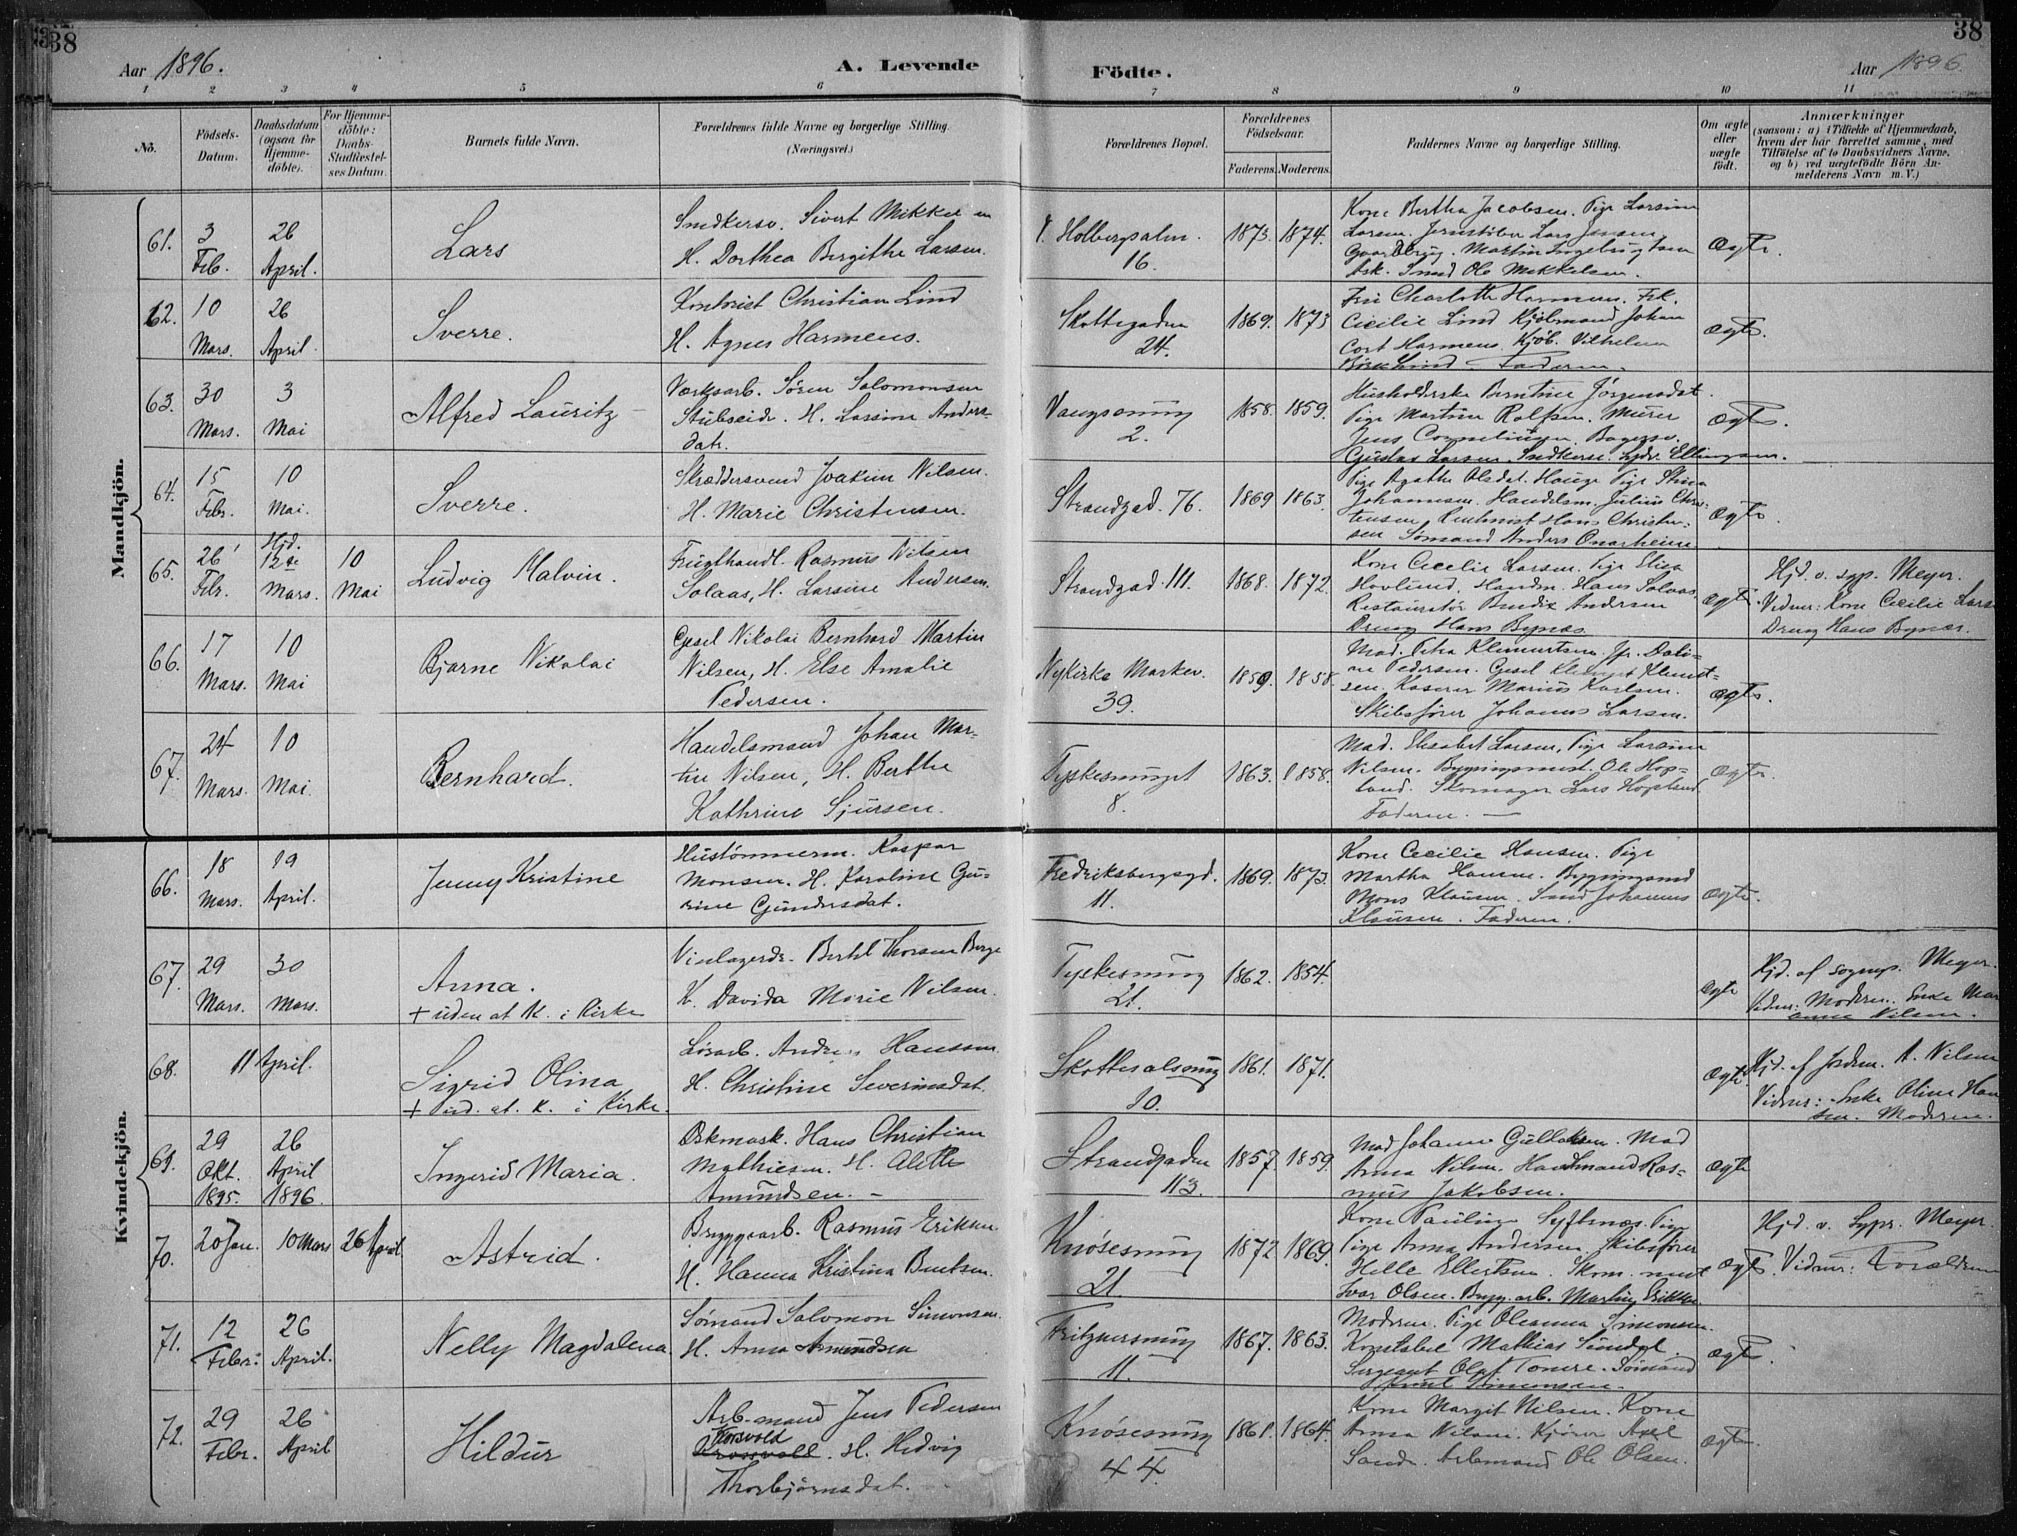 38
Aar 1896.
A. Levende
Födte.
Aar 1896.
38
1 2 3 4 5 6 7 8 9 10 11
No.
Födsels-Datum.
Daabsdatum (ogsaa for Hjemmedöbte).
For Hjemmedöbte: Daabs-Stadfæstelses Datum.
Barnets fulde Navn.
Forældrenes fulde Navne og borgerlige Stilling. (Næringsvei.)
Forældrenes Bopæl.
Forældrenes Födselsaar.
Faderens. Moderens.
Faddernes Navne og borgerlige Stilling.
Om ægte eller uægte födt.
Anmærkninger
(saasom: a) i Tilfælde af Hjemmedaab, hvem der har forrettet samme, med Tilföielse af to Daabsvidners Navne, og b) ved uægtefödte Börn Anmelderens Navn m. V.)
Mandkjön.
61. 3 Feb. 26 April. Lars
Snedkersv. Sivert Mikkelsen
H. Dorthea Birgithe Larsen.
Holbergsalm. 16. 1873. 1874.
Kone Bertha Jacobsen. Pige Larsine
Larsen. Jernstøber Lars Jensen
Ask. Smed Ole Mikkelsen.
Ægte.
62. 10 Mars. 26 April. Sverre.
Kontorist Christian Lind
H. Agnes Harmens.
Skottegaden 24. 1869. 1873
Fru Charlotte Harmens. Frk.
Cecilie Lind Kjöbmand Johan
Cort Harmens. Kjøb. Vilhelm
Lind Faderen.
Ægte.
63. 30 Mars. 3 Mai Alfred Lauritz
Værksarb. Sören Salomonsen
Stubseid. H. Larsine Anders-
datr.
Vaagsmug 2. 1858. 1859.
Husholderske Berntine Jörgensdat.
Pige Martine Rolfsen. Murer
Jens Cornelius en. Bagersv.
Gustav Larsen. Snedkersv. Ludv. Ellingsen.
Ægte.
64. 15 Febr. 10 Mai. Sverre.
Skræddersvend Joakim Nilsen.
H. Marie Christensen.
Strandgad. 76. 1869 1863.
Pige Agathe Olsdat. Hauge Pige Stina
Johannesen. Handelsm. Julius Chris-
tensen Hans Christen-
sen Sömand Anders Onarheim.
Ægte.
65. 26 Febr. Hjd. 12te Mars. 10 Mai Ludvig Malvin.
Frugthandl. Rasmus Nilsen
Solaas, H. Larsine Andersen.
Strandgad. 111. 1868. 1872.
Kone Cecilie Larsen. Pige Elisa
Hovlund. Handm. Hans Solaas.
Restauratör Bendix Andersen
Dreng Hans Bynæs.
Ægte.
Hjd. v. sgp. Meyer.
Vidner: Kone Cecilie Lars
Dreng Hans Bynæs.
66. 17 Mars. 10 Mai Bjarne Nikolai
Gjesel Nikolai Bernhard Martin
Nilsen, H. Else Amalie
Pedersen.
Nykirke Marken. 39. 1859. 1858.
Mad. Petra Klementsen. Jfr. Dali-
ne Pedersen. Gjesel Klement-
sen. Kaserer Marius Karlsen.
Skibsförer Johannes Larsen.
Ægte.
67. 24 Mars. 10 Mai. Bernhard.
Handelsmand Johan Mar-
tin Nilsen, H. Berthe
Kathrine Sjursen.
Tyskesmuget 8. 1863. 1858.
Mad. Elisabet Larsen, Pige Larsine
Nilsen. Bygningsmest. Ole Hop-
land. Skomager Lars Hopland
Faderen.
Ægte.
Kvindekjön.
66. 18 Mars. 19 April. Jenny Kristine
Hustömmerm. Kaspar
Monsen. H. Karoline Gu-
rine Gundersdat.
Fredriksbergsgd. 11. 1869. 1873.
Kone Cecilie Hansen. Pige
Martha Hansen. Bygningssnd
Mons Klausen. Smed Johannes
Klausen. Faderen.
Ægte.
67. 29 Mars. 30 Mars. Anna.
+ uden at K. i Kirke
Vinlagerdr. Bertel Thorsen Berge
H. Davida Marie Nilsen.
Tyskesmug 21. 1862. 1854.
Ægte
Hjd. af sognep. Meyer.
Vidner: Moderen. Enke Mar
anne Nilsen.
68. 11 April. Sigrid Olina
+ Ud. at. K. i Kirke.
Lösarb. Andreas Hanssen.
H. Christine Severinsdat.
Skottesalsmug 10. 1861. 1871.
Ægte.
Hjd. af Jordm. A. Nilsen
Vidner: Enke Oline Han
sen. Moderen.
69. 29 Okt. 1895. 26 April 1896. Ingerid Maria.
Hans Christian
Mathiesen. H. Alette
Amundsen.
Strandgaden 113. 1857. 1859.
Mad Johanne Gullaksen. Mad
Anna Nilsen. Handlmand Ras-
mus Jakobsen.
Ægte
70. 20 Jan. 10 Mars 26 April. Astrid.
Bryggearb. Rasmus Eriksen
H. Hanna Kristina Bentsen.
Knøsesmug 21. 1872 1869.
Kone Pauline Pige
Pige Anna Andersen Skibsförer
Helle Ellertsen. Skom. mest
Ivar Olsen. Brygg. arb. Martin Eriksen
Ægte.
Hjd. v. Sgpr. Meyer.
Vidner: Forældrene
71. 12 Febr: 26 April. Nelly Magdalena
Sömand Salomon Simonsen.
H. Anna Amundsen
Fritznersmug 11. 1867. 1863.
Moderen. Pige Oleanna Simonsen.
Konstabel Mathias Sundal.
Sergeant Olaf Sömand
Knut Simonsen.
Ægte.
72. 29 Febr. 26 April Hildur
Arb.mand Jens Pedersen
Korsvold
H. Hedvig
Thorbjörnsdat.
Knøsesmug 44. 1861. 1864.
Kone Margit Nilsen. Kone
Anna Nilsen. Kjörer Axel
Sand. Arbmand Ole Olsen.
Ægte.